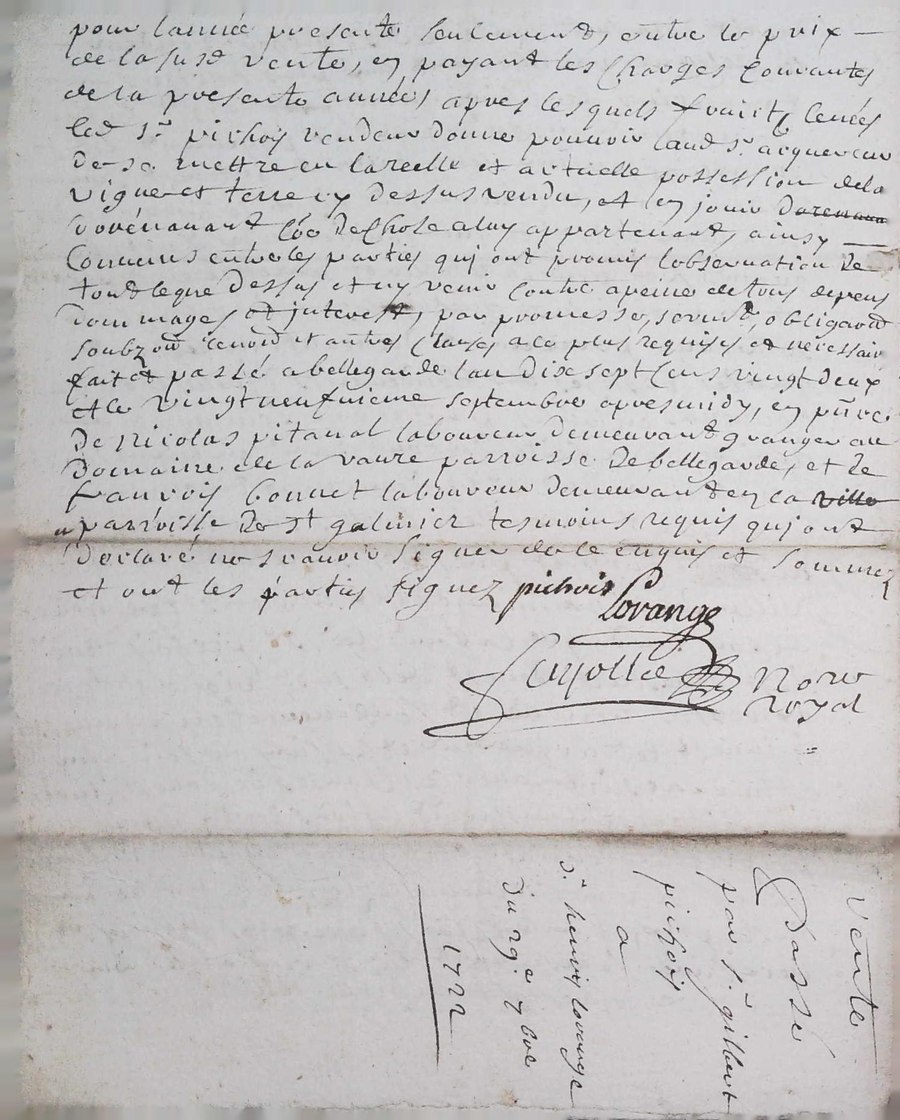 pour lannée presente seulement, outre le prix
de la susd vente, en payant les charges Courantes
de la presente année, apres lesquels fruits levées
led sr. pichois vendeur donne pouvoir aud sr. acquereur
de se mettre en la reelle et actuelle possession de la
vigne et terre cy dessus vendu, et en jouir
Coe De Chose aluy appartenant, ainsy
Convenus entre les parties qui ont promis lobservation De
tout leque Dessus et ny venir Contre apeine de tous depens
Dommages et interest, par promesse, serment, obligaon
soubzon renon et autres Clauses a ce plus requises et necessair
fait et passé a bellegarde lan Dix sept Cens vingt Deux
et le vingt neufvieme septembre apres midy, en pnce
De nicolas pitaval laboureur demeurant granger au
Domaine de la vaure parroisse De bellegarde, et De
francois bonnet laboureur demeurant en la ville
parroisse De st galmier tesmoins requis qui ont
Declaré ne scavoir signer de ce enquis et sommez
et ont les parties signez pichois
Lorange
nore
royal
vente
passé
par sr. gilbert
pichois
a
sr. henris lorange
du 29e 7bre
1722